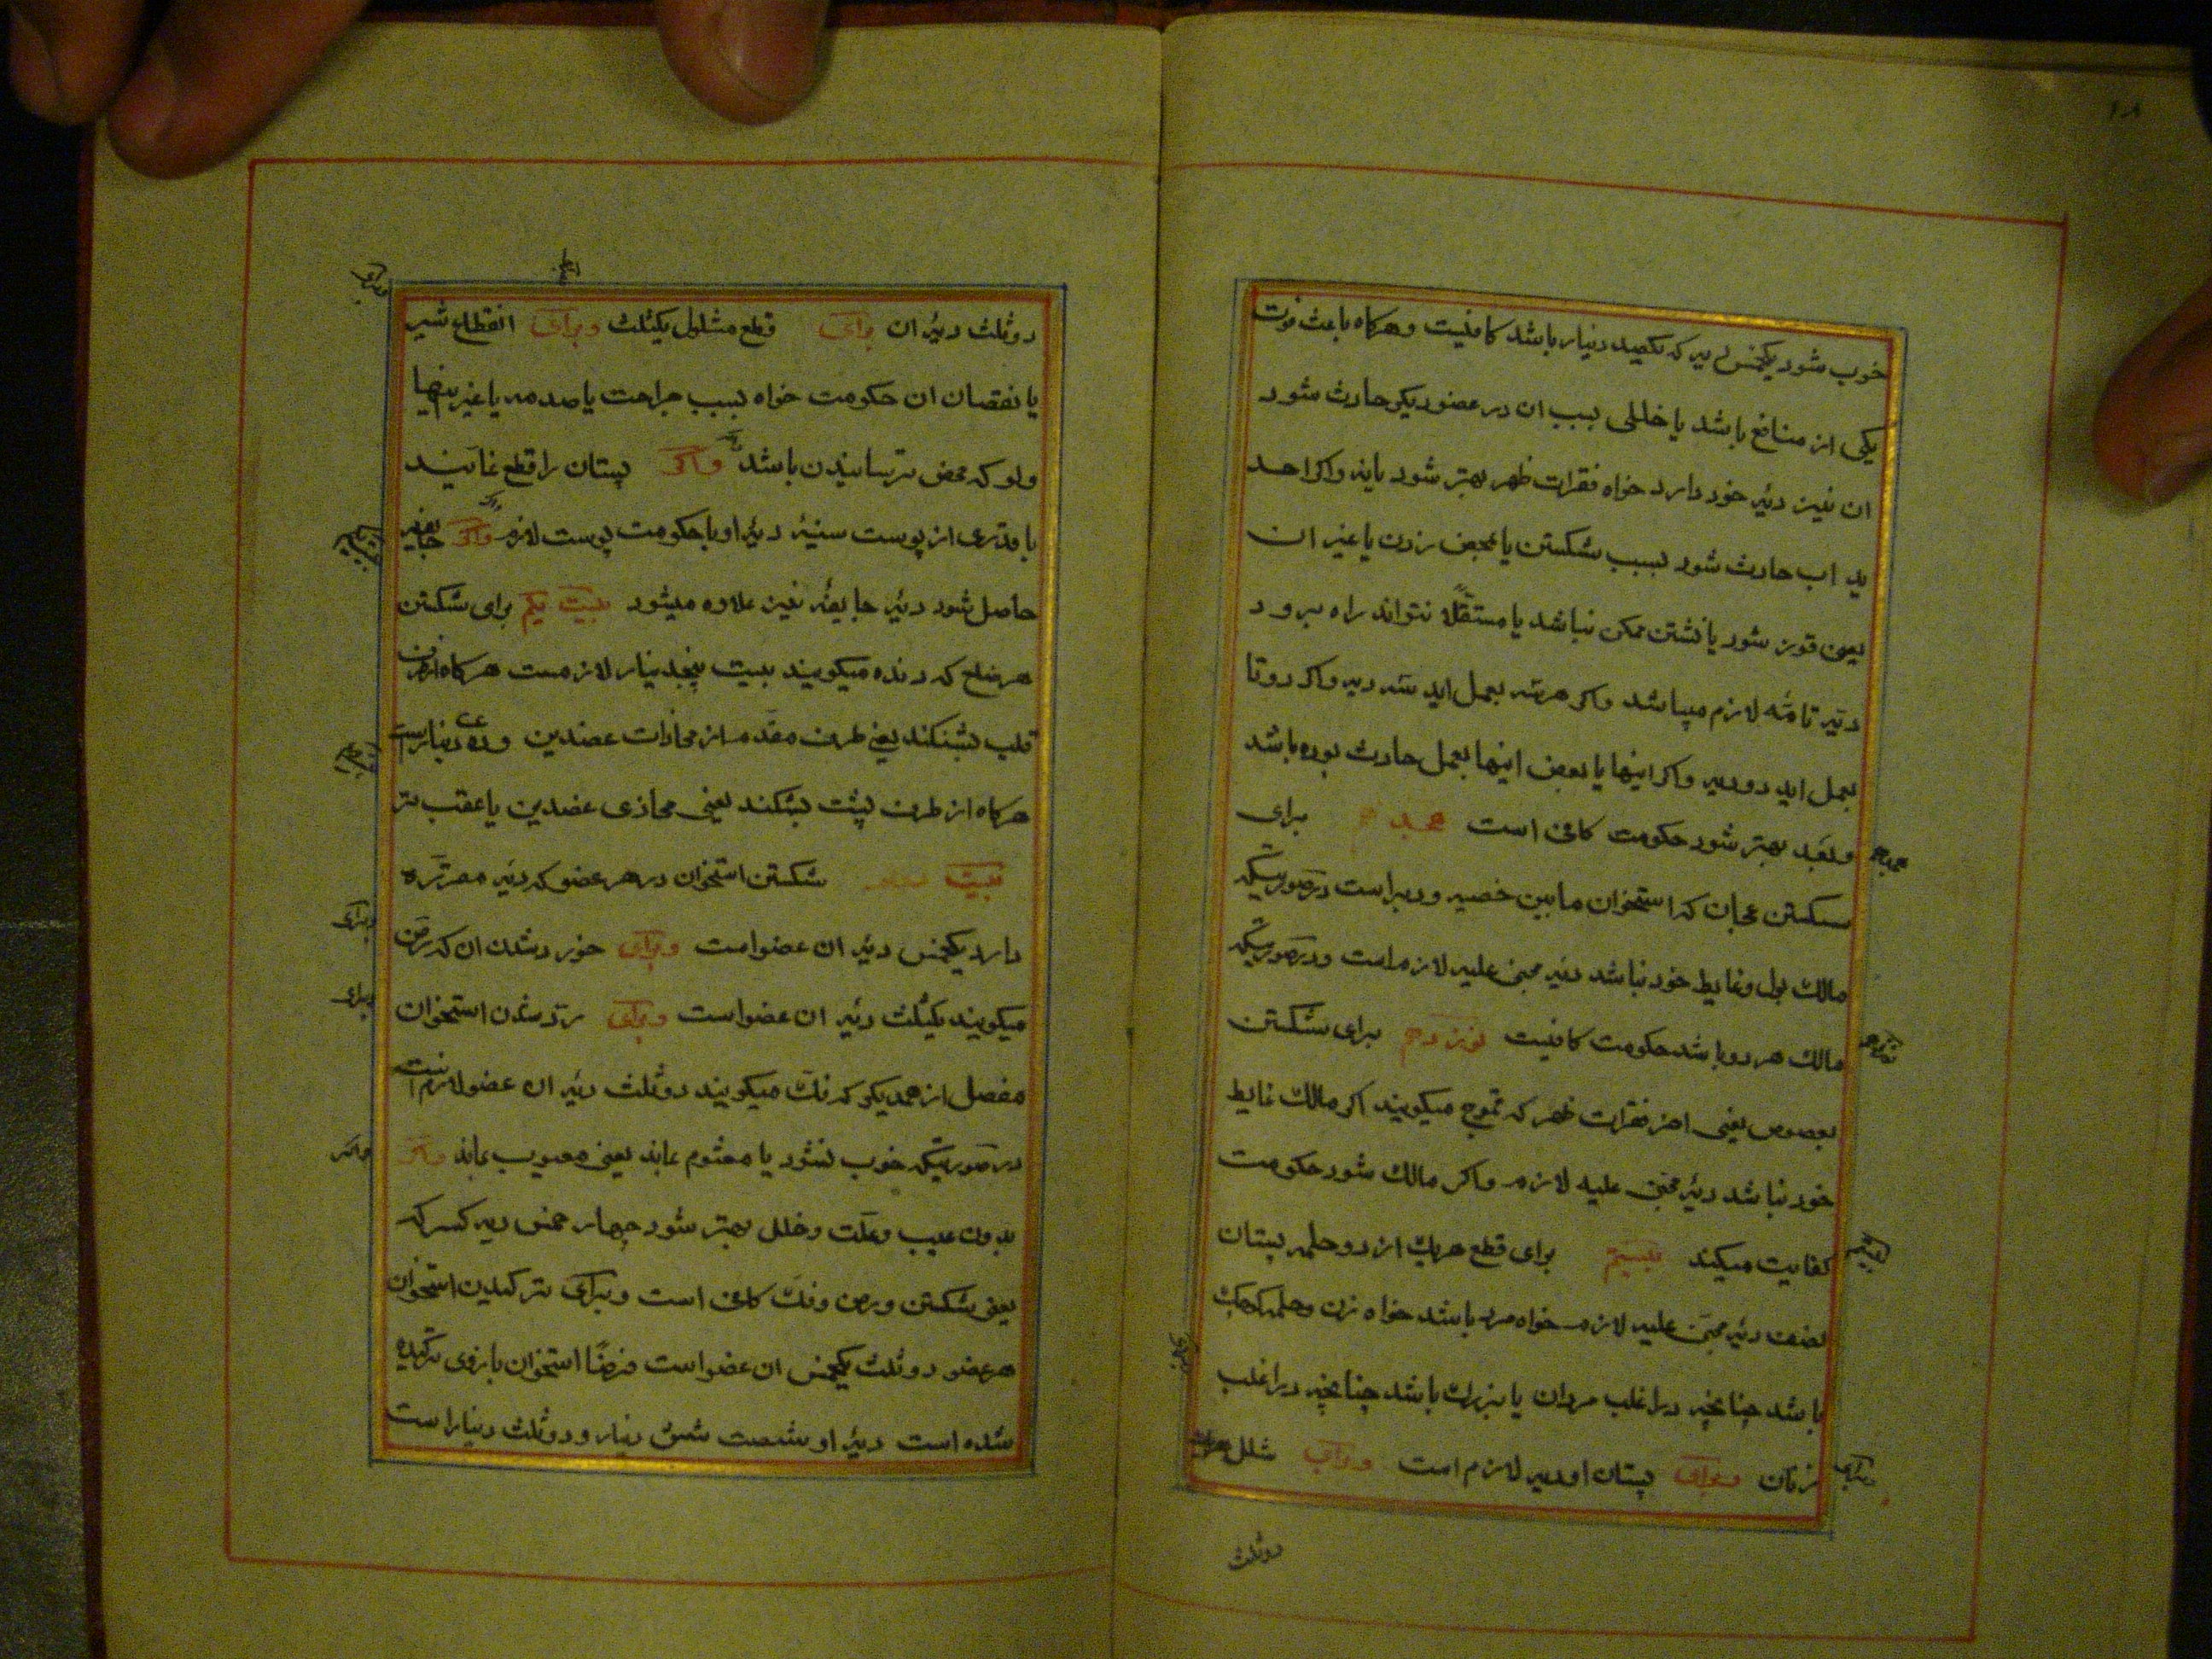 خوب شود یکخمس دیه که یکصد دینار باشد کافیست و هرکاه باعث فوت
یکی از منافع باشد یا خللی بسبب ان در عضو دیکر حادث شود
ان نیز دیهٔ خود دارد خواه فقرات ظهر بهتر شود یا نه واکر احد
یداب حادث شود بسبب شکستن یا بمحض زدن یا غیر ان
یعنی قوز شود یا نشتن ممکن نباشد یا مستقلًا نتواند راه برود
دیهٔ تامّه لازم میباشد واکر هر سه بعمل اید سه دیه واکر دوتا
بعمل اید دو دیه واکر اینها یا بعض اینها بعمل حادث بوده باشد
وبعد بهتر شود حکومت کافی است برای
شکستن عجان که استخوان مابین خصیه و دبر است در صورتیکه
مالك بول وغایط خود نباشد دیه مجنی علیه لازم است ودر صورتیکه
مالك هر دو باشد حکومت کافیست نوزدهم برای شکستن
بعصوص یعنی اخر فقرات ظهر که میکویند اکر مالك غایط
خود نباشد دیهٔ مجنی علیه لازم واکر مالك شود حکومت
کفایت میکند بیستم برای قطع هریك از دو حلمهٔ پستان
نصف دیهٔ مجنی علیه لازم خواه مرد باشد خواه زن وحلمه کوچك
باشد چنانچه در اغلب مردان یا بزرك باشد چنانچه در اغلب
زنان وبرای پستان او دیه لازم است وبرای شلل هریك
دوثلث
دوثلث دیهٔ ان برای قطع مشلول یکثلث وبرای انقطاع شیر
یا نقصان ان حکومت خواه بسبب جراحت یا صدمه یا غیر اینها
ولو که محض ترسانیدن باشد واکر پستان را قطع نمایند
با قدری از پوست سینه دیهٔ او با حکومت پوست لازم واکر جایفه
حاصل شود دیهٔ جایفه نیز علاوه میشود بیست یکم برای شکستن
هر ضلع که دنده میکویند بیست پنجدینار لازمست هرکاه از طرف
قلب بشکند یعنی طرف مقدم از محاذات عضدین وده دینار است
هرکاه از طرف پشت بشکند یعنی محاذی عضدین یا عقب تر
بیست شکستن استخوان در هر عضو که دیهٔ مقرّره
دارد یکخمس دیهٔ ان عضو است وبرای خورد شدن ان که رض
میکویند یکثلث دیهٔ ان عضو است وبرای رد شدن استخوان
مفصل از همدیکر که فك میکویند دوثلث دیهٔ ان عضو لازم است
در صورتیکه خوب نشود یا معثوم نماند یعنی معیوب نماند واکر
بدون عیب وعلت وخلل بهتر شود چهار خمس دیه کسر که
یعنی شکستن ورض وفك کافی است وبرای ترکیدن استخوان
هر عضو دوثلث یکخمس ان عضو است فرضًا استخوان بازوی ترکیده
شده است دیهٔ او شصت شش دینار ودوثلث دینار است